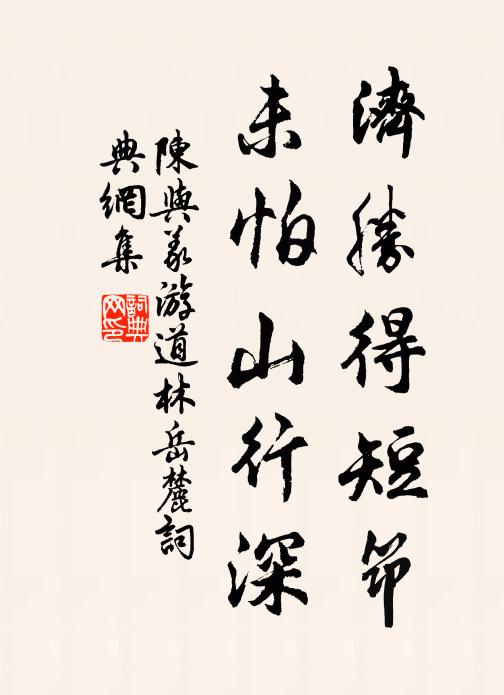 濟勝得短筇
未怕山行深
陳與義游道林岳麓詞
典網集
詞典
网印